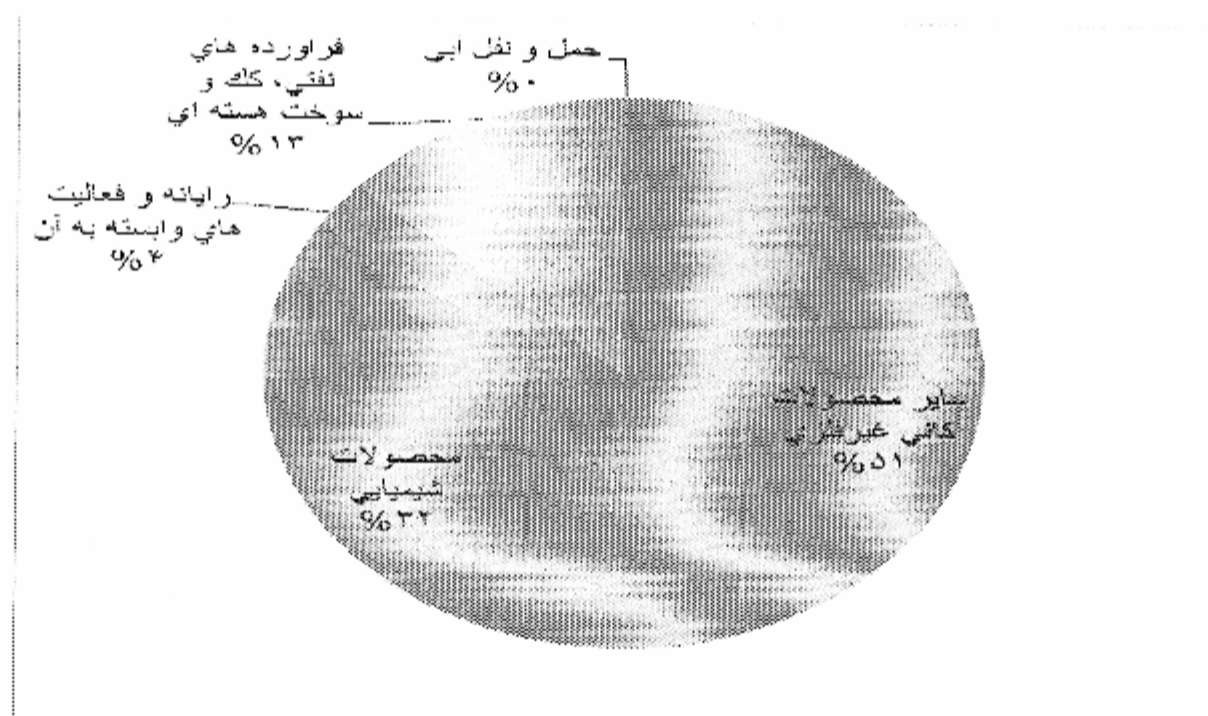 حمل و نقل ابی
%۰
فراورده هاي
نفتي، كك و
سوخت هسته اي
%۱۳
رايانه و فعاليت
هاي وابسته به آن
%۴
ساير محصولات
كاني غيرفلزي
%۵۱
محصولات
شيميايي
%۳۲